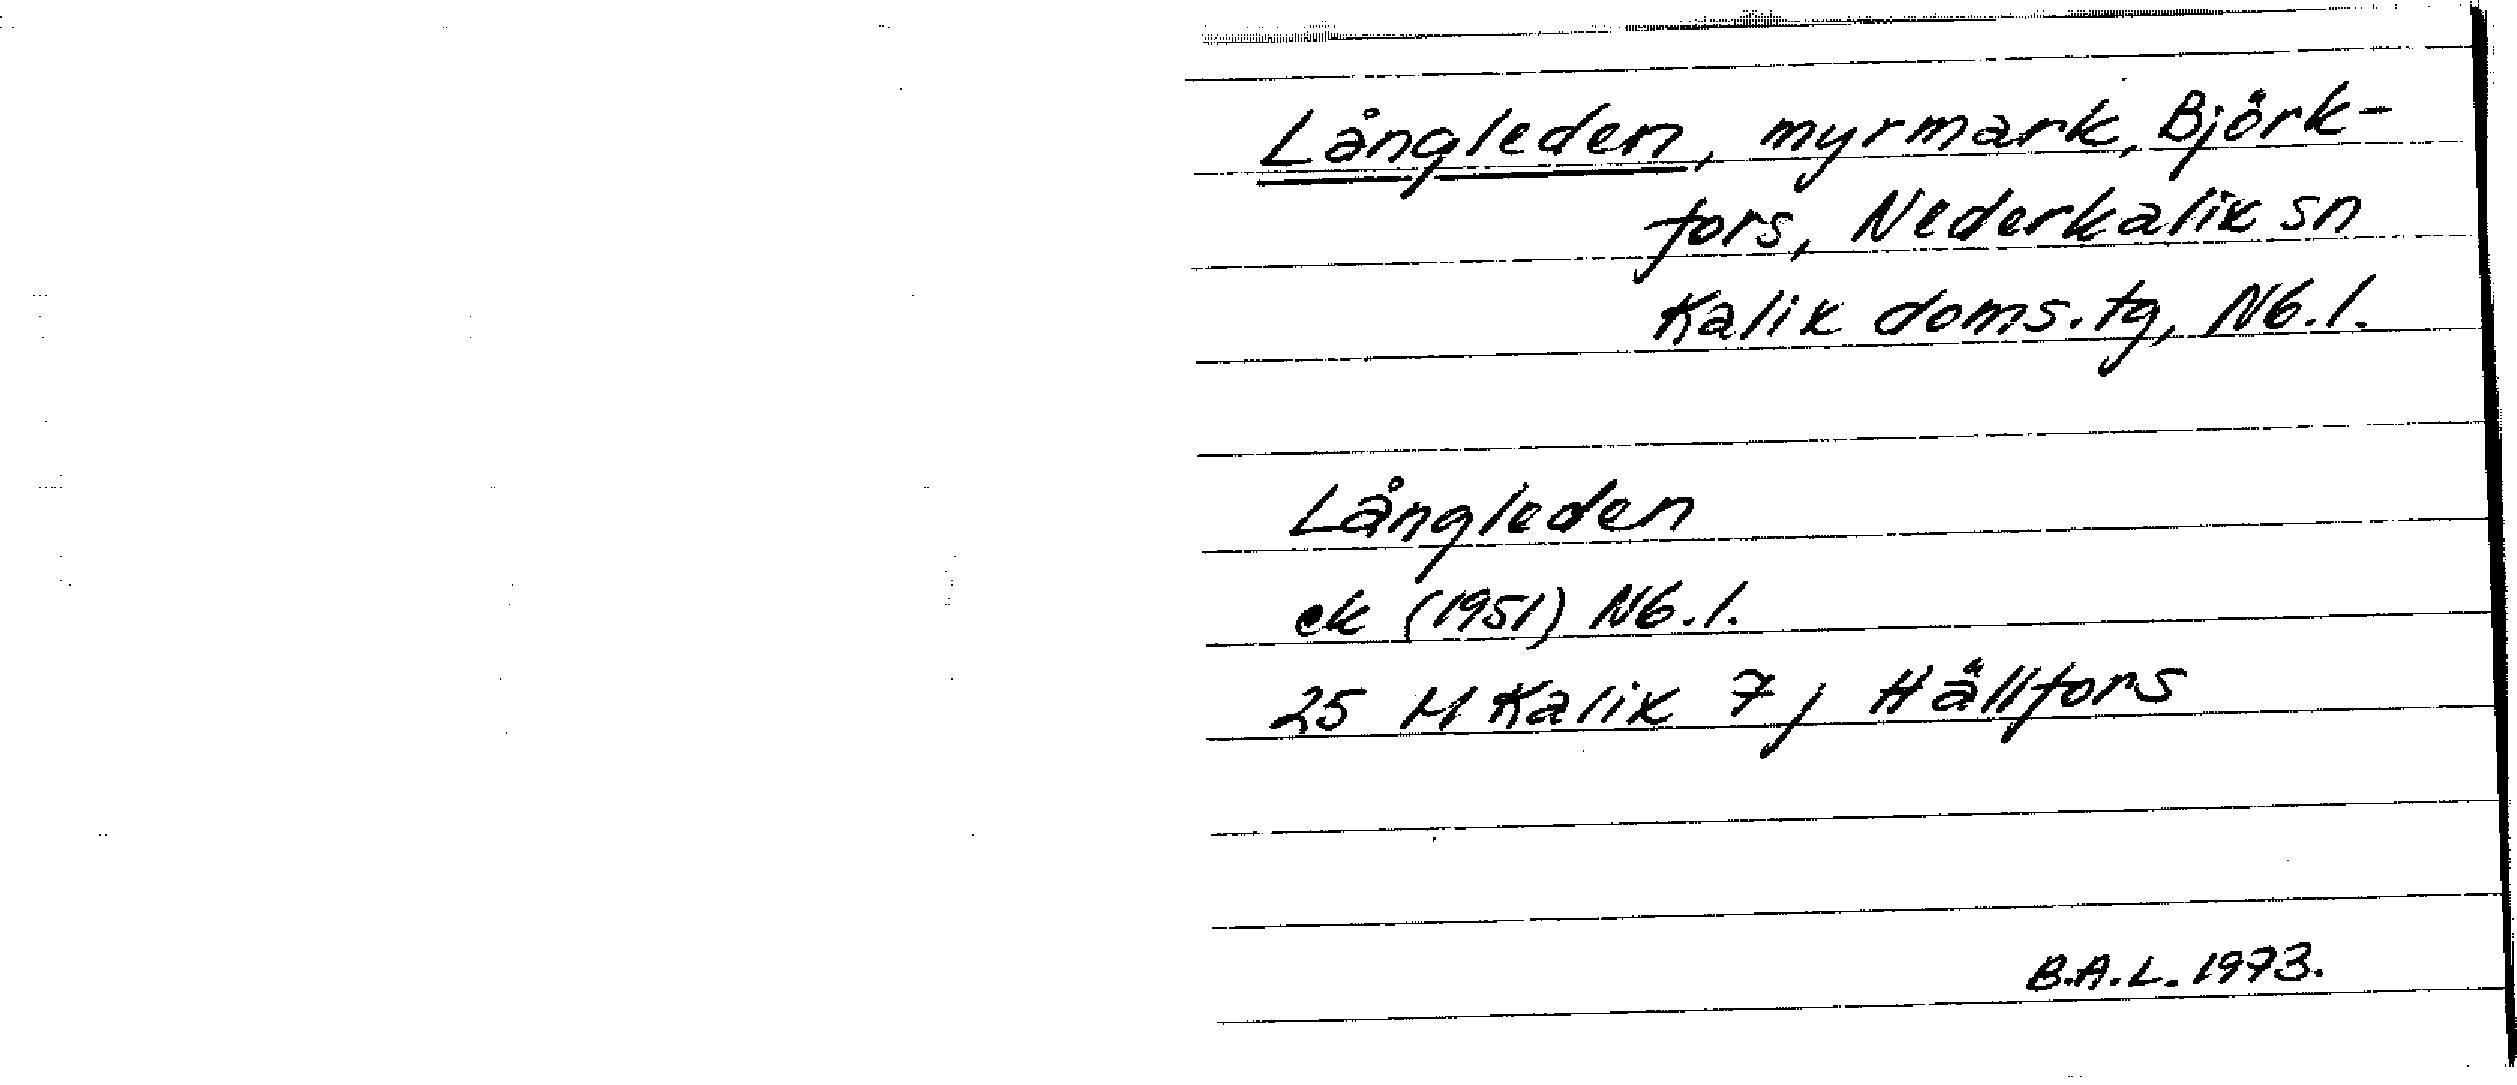 Långleden, myrmark, Björk-
fors, Nederkalix sn
Kalix doms.tg, Nb.l.
Långleden
ek (1951) Nb.l.
25 M Kalix 7, Hällfors
B.A.L. 1973.